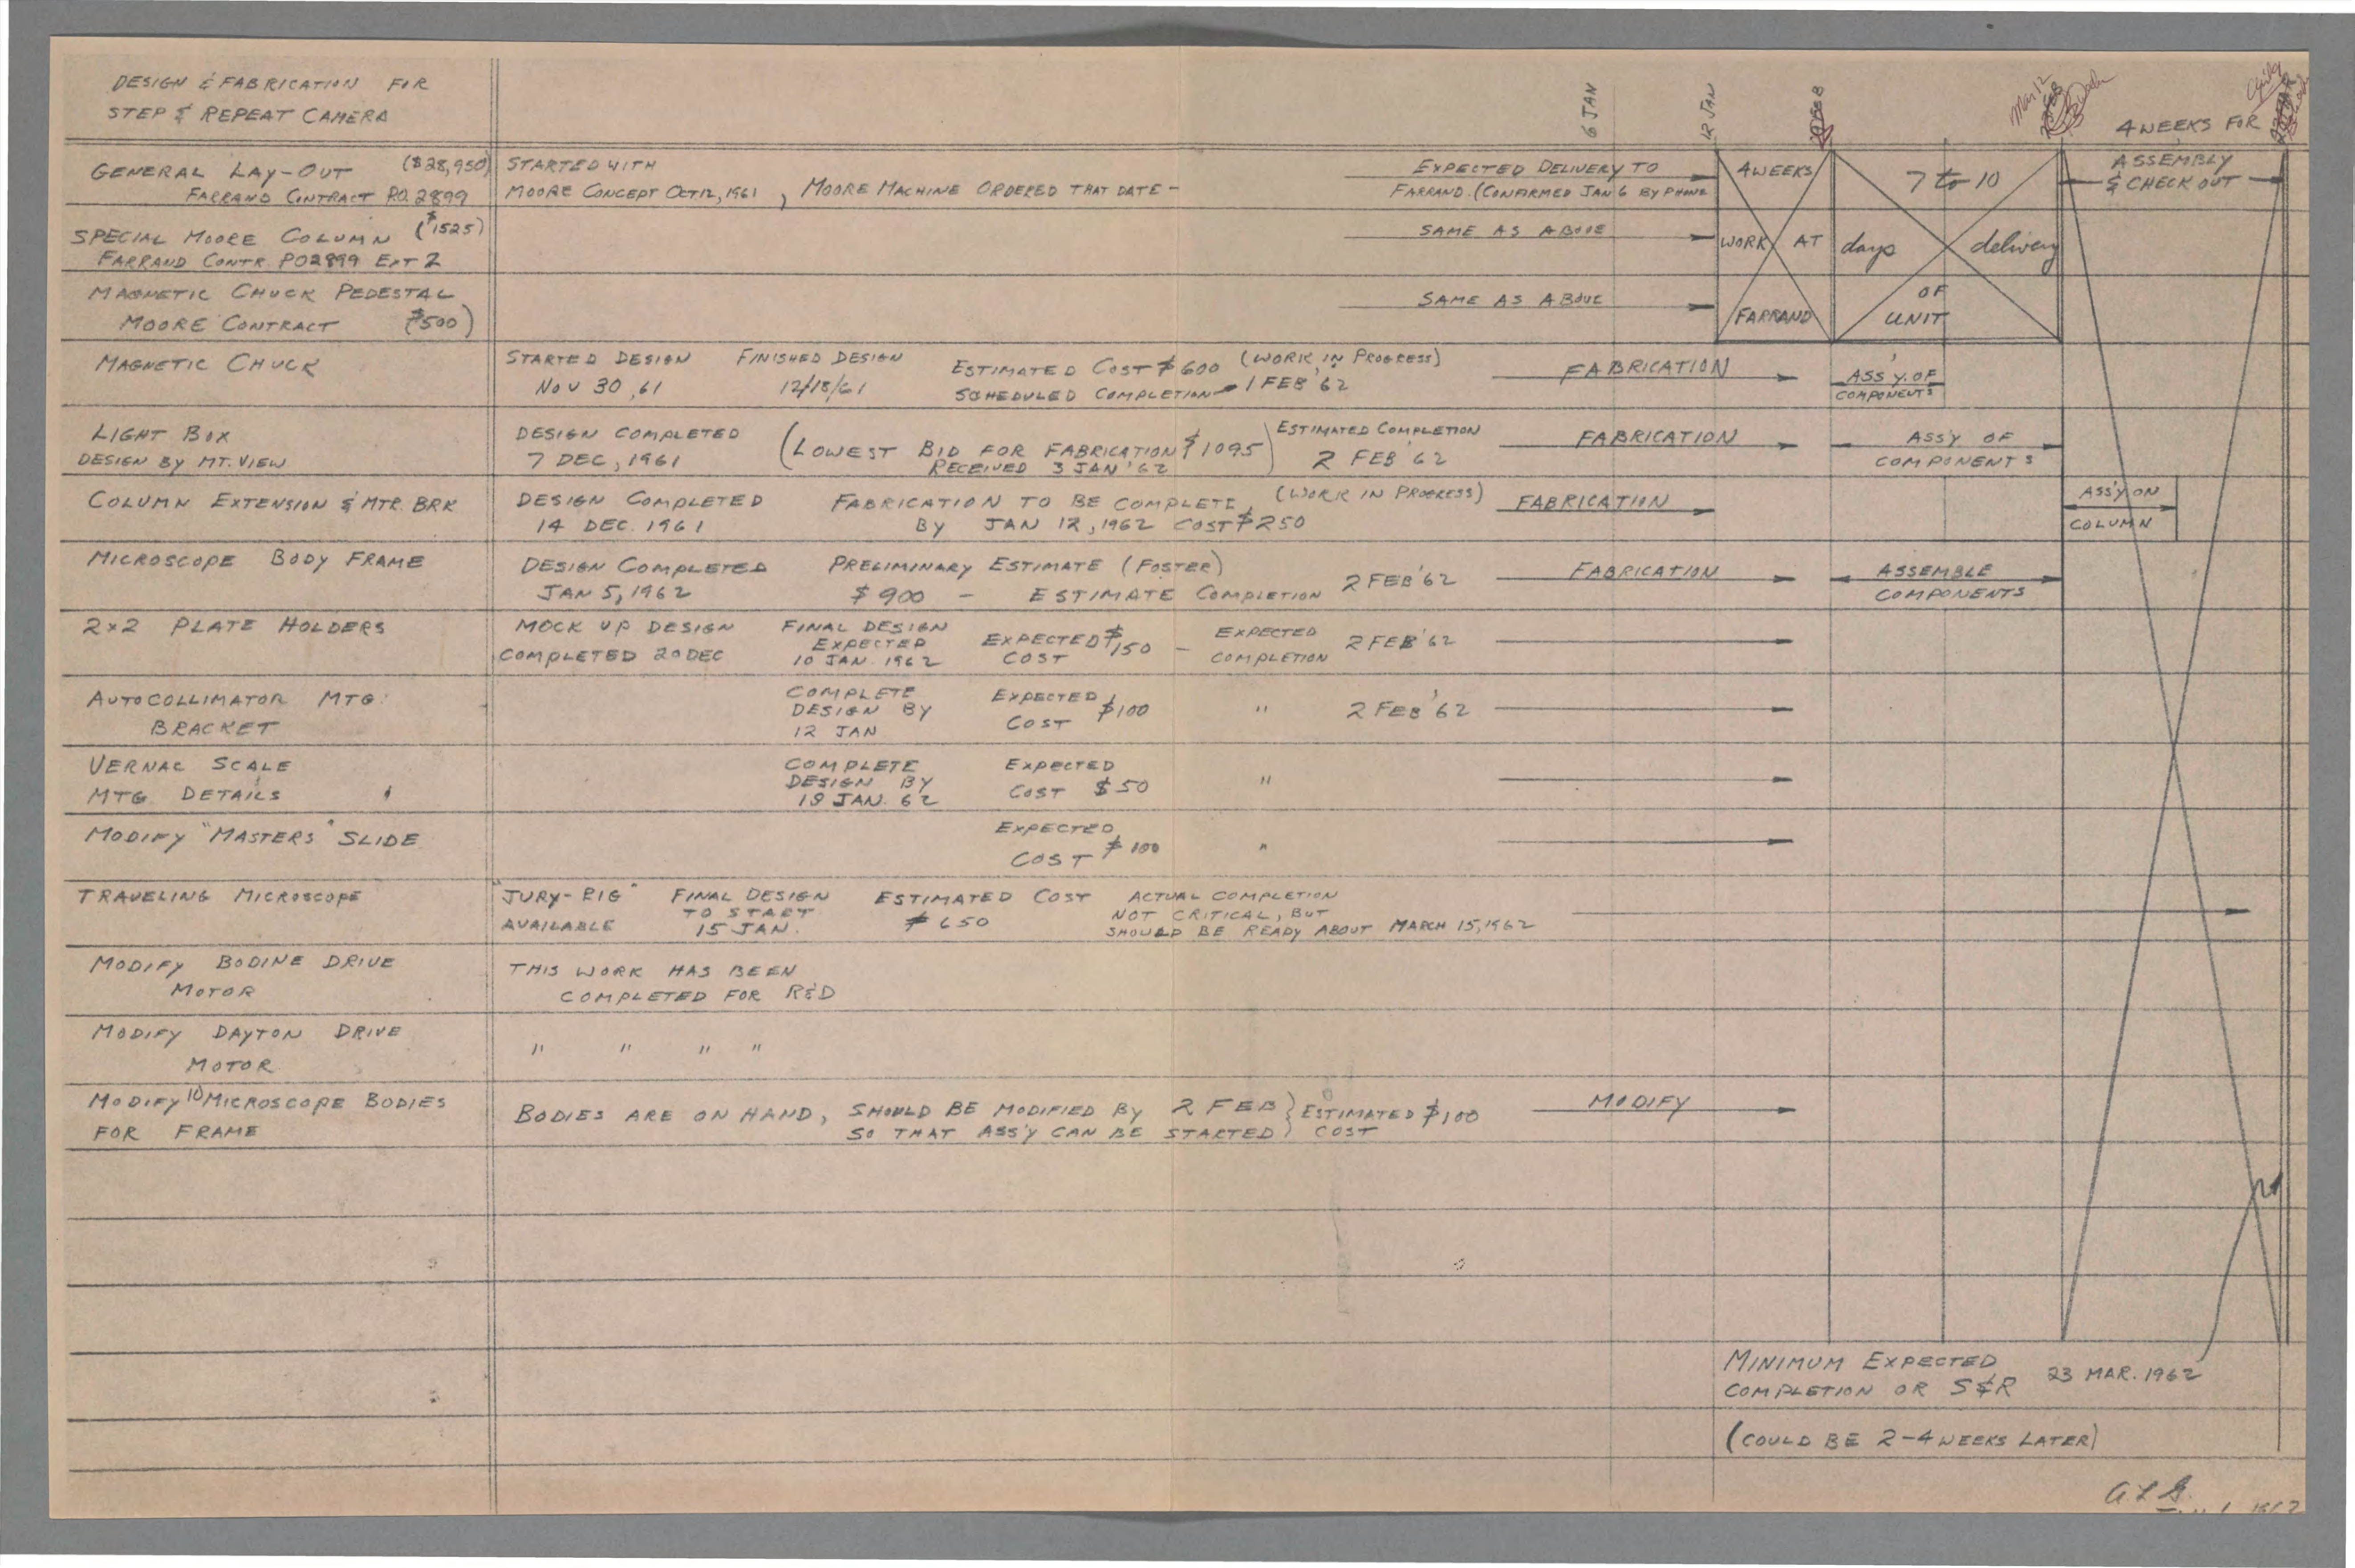 DESIGN & FABRICATION FOR
STEP & REPEAT CAMERA
6 JAN
12 JAN
Mar 12
4 WEEKS FOR
GENERAL LAY-OUT ($28,950)
FARRAND CONTRACT P.O. 2899
STARTED WITH
MOORE CONCEPT OCT 12, 1961 , MOORE MACHINE ORDERED THAT DATE -
EXPECTED DELIVERY TO
FARRAND. (CONFIRMED JAN 6 BY PHONE
4 WEEKS
7 to 10
ASSEMBLY
& CHECK OUT
SPECIAL MOORE COLUMN ($1525)
FARRAND CONTR. PO2899 EXT 2
SAME AS ABOVE
WORK AT
days delivery
MAGNETIC CHUCK PEDESTAL
MOORE CONTRACT ($500)
SAME AS ABOVE
FARRAND
OF
UNIT
MAGNETIC CHUCK
STARTED DESIGN
NOV 30, 61
FINISHED DESIGN
12/18/61
ESTIMATED COST $600 (WORK IN PROGRESS)
SCHEDULED COMPLETION 1 FEB '62
FABRICATION
ASS'Y. OF
COMPONENTS
LIGHT BOX
DESIGN BY MT. VIEW
DESIGN COMPLETED
7 DEC, 1961
(LOWEST BID FOR FABRICATION $1095)
RECEIVED 3 JAN '62
ESTIMATED COMPLETION
2 FEB '62
FABRICATION
ASS'Y OF
COMPONENTS
COLUMN EXTENSION & MTR. BRK
DESIGN COMPLETED
14 DEC. 1961
FABRICATION TO BE COMPLETE (WORK IN PROGRESS)
BY JAN 12, 1962 COST $250
FABRICATION
ASS'Y ON
COLUMN
MICROSCOPE BODY FRAME
DESIGN COMPLETED
JAN 5, 1962
PRELIMINARY ESTIMATE (FOSTER)
$900 - ESTIMATE COMPLETION 2 FEB '62
FABRICATION
ASSEMBLE
COMPONENTS
2x2 PLATE HOLDERS
MOCK UP DESIGN
COMPLETED 20 DEC
FINAL DESIGN
EXPECTED
10 JAN. 1962
EXPECTED $150 -
COST
EXPECTED
COMPLETION
2 FEB '62
AUTOCOLLIMATOR MTG.
BRACKET
COMPLETE
DESIGN BY
12 JAN
EXPECTED
COST $100
" 2 FEB '62
VERNAC SCALE
MTG. DETAILS
COMPLETE
DESIGN BY
19 JAN. 62
EXPECTED
COST $50
"
MODIFY "MASTERS" SLIDE
EXPECTED
COST $100
"
TRAVELING MICROSCOPE
"JURY-RIG"
AVAILABLE
FINAL DESIGN
TO START
15 JAN.
ESTIMATED COST
$650
ACTUAL COMPLETION
NOT CRITICAL, BUT
SHOULD BE READY ABOUT MARCH 15, 1962
MODIFY BODINE DRIVE
MOTOR
THIS WORK HAS BEEN
COMPLETED FOR R&D
MODIFY DAYTON DRIVE
MOTOR
" " " "
MODIFY 10 MICROSCOPE BODIES
FOR FRAME
BODIES ARE ON HAND, SHOULD BE MODIFIED BY 2 FEB
SO THAT ASS'Y CAN BE STARTED
} ESTIMATED $100
COST
MODIFY
MINIMUM EXPECTED
COMPLETION OR S&R 23 MAR. 1962
(COULD BE 2-4 WEEKS LATER)